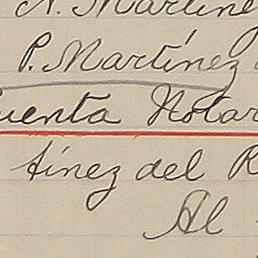 N. Martínez
P. Martínez
uenta Notar
tínez del R
Al